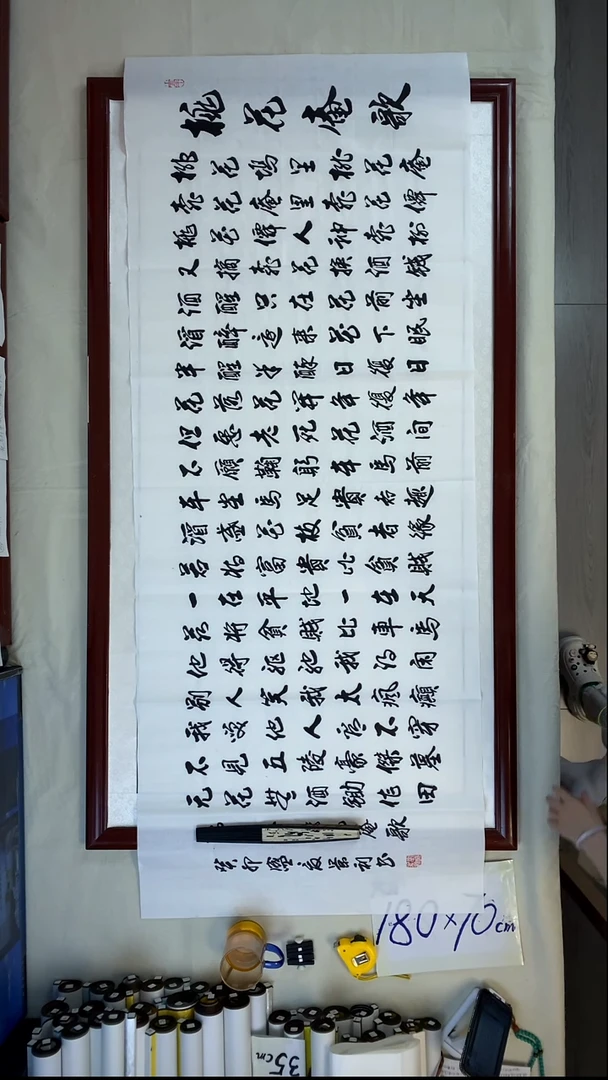 桃花庵歌
桃花塢里桃花庵
桃花庵里桃花僊
桃花僊人种桃樹
又摘桃花換酒錢
酒醒只在花前坐
酒醉還來花下眠
半醒半醉日復日
花落花開年復年
但愿老死花酒間
不願鞠躬車馬前
車塵馬足貴者趣
酒盞花枝貧者緣
若將富貴比貧賤
一在平地一在天
若將貧賤比車馬
他得驅馳我得閑
別人笑我太瘋癲
我笑他人看不穿
不見五陵豪傑墓
无花無酒鋤作田
庵歌
癸卯盛夏景利書
180×70cm
35cm